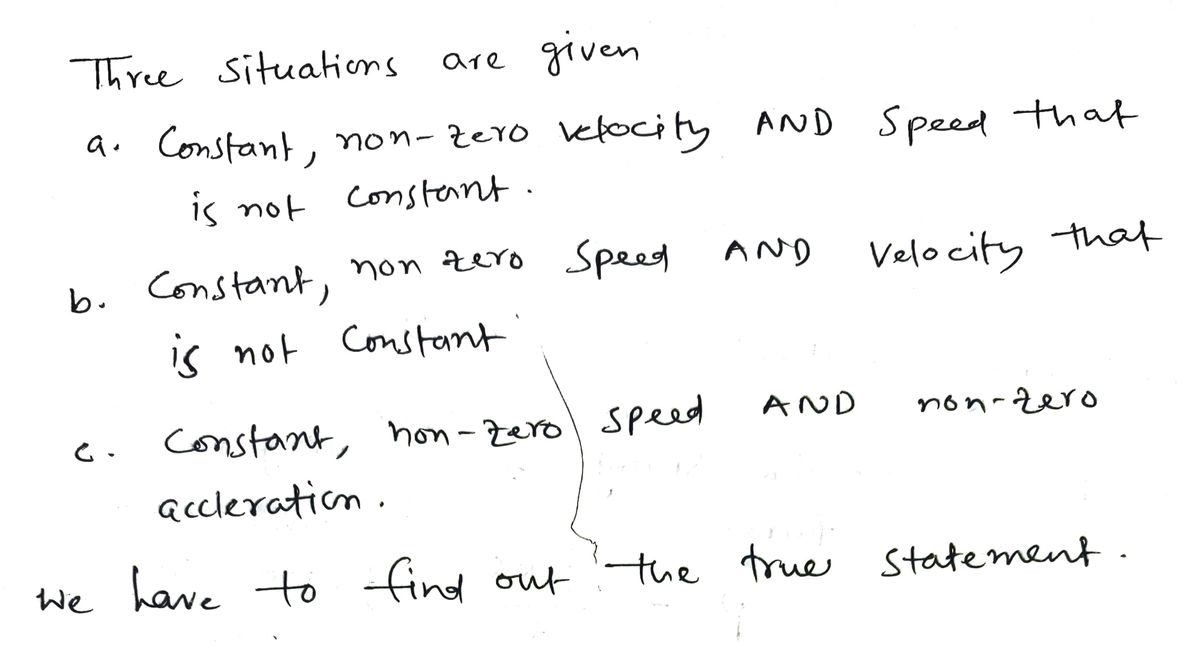 Three situations are given
a. Constant, non-zero velocity AND Speed that
is not constant.
b. Constant, non zero Speed AND Velocity that
is not Constant
c. Constant, non-zero speed AND non-zero
accleration.
We have to find out the true statement.